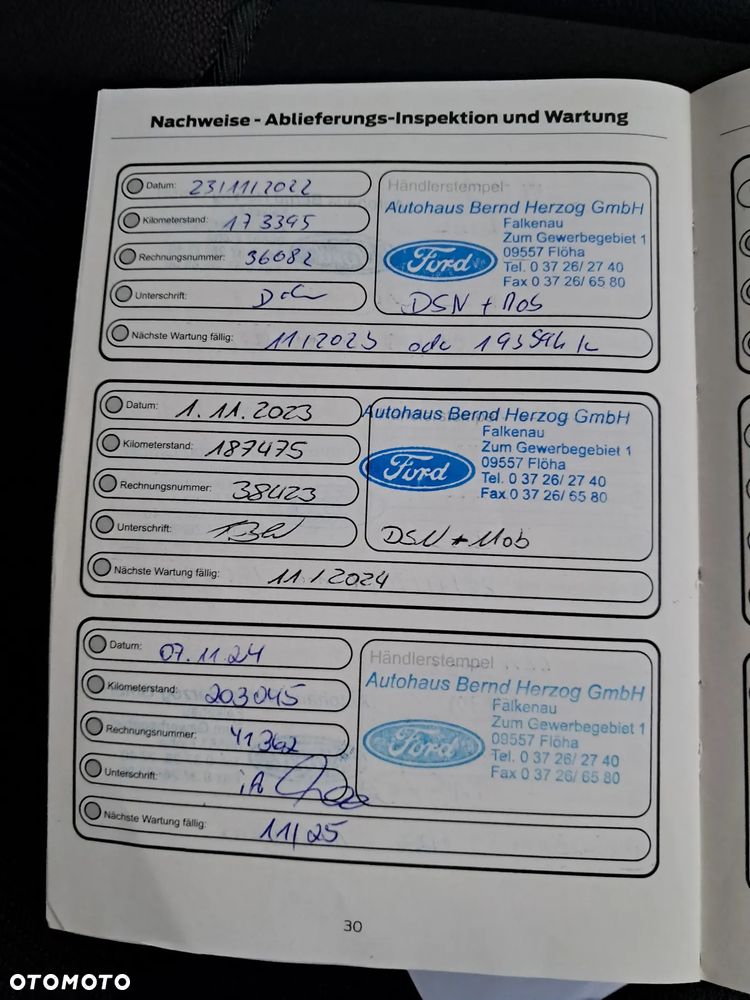 Nachweise - Ablieferungs-Inspektion und Wartung
Datum: 23/11/2022
Kilometerstand: 173395
Rechnungsnummer: 36082
Unterschrift:
Nächste Wartung fällig: 11/2023
Händlerstempel
Autohaus Bernd Herzog GmbH
Falkenau
Zum Gewerbegebiet 1
09557 Flöha
Tel. 0 37 26/ 27 40
Fax 0 37 26/ 65 80
Ford
DSN + Mob
Datum: 1.11.2023
Kilometerstand: 187475
Rechnungsnummer: 38423
Unterschrift:
Nächste Wartung fällig: 11/2024
Autohaus Bernd Herzog GmbH
Falkenau
Zum Gewerbegebiet 1
09557 Flöha
Tel. 0 37 26/ 27 40
Fax 0 37 26/ 65 80
Ford
DSN + Mob
Datum: 07.11.24
Kilometerstand: 203045
Rechnungsnummer: 41362
Unterschrift: iA
Nächste Wartung fällig: 11/25
Händlerstempel
Autohaus Bernd Herzog GmbH
Falkenau
Zum Gewerbegebiet 1
09557 Flöha
Tel. 0 37 26/ 27 40
Fax 0 37 26/ 65 80
Ford
30
OTOMOTO